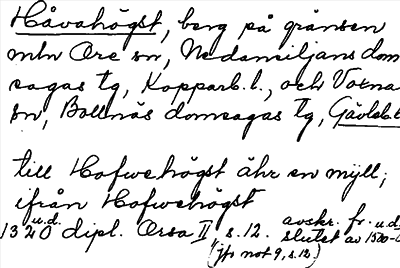 Håvahögst, berg på gränsen
mln Ore sn, Nedansiljans dom
sagas tg, Kopparb. l., och Voxna
sn, Bollnäs domsagas tg, Gävleb. l
till Hofwehögst ähr en myll;
ifrån Hofwehögst
u.d.
1320 dipl. Orsa II s. 12. avskr. fr. u.d.
slutet av 1500-
(jfr not 9, s. 12)